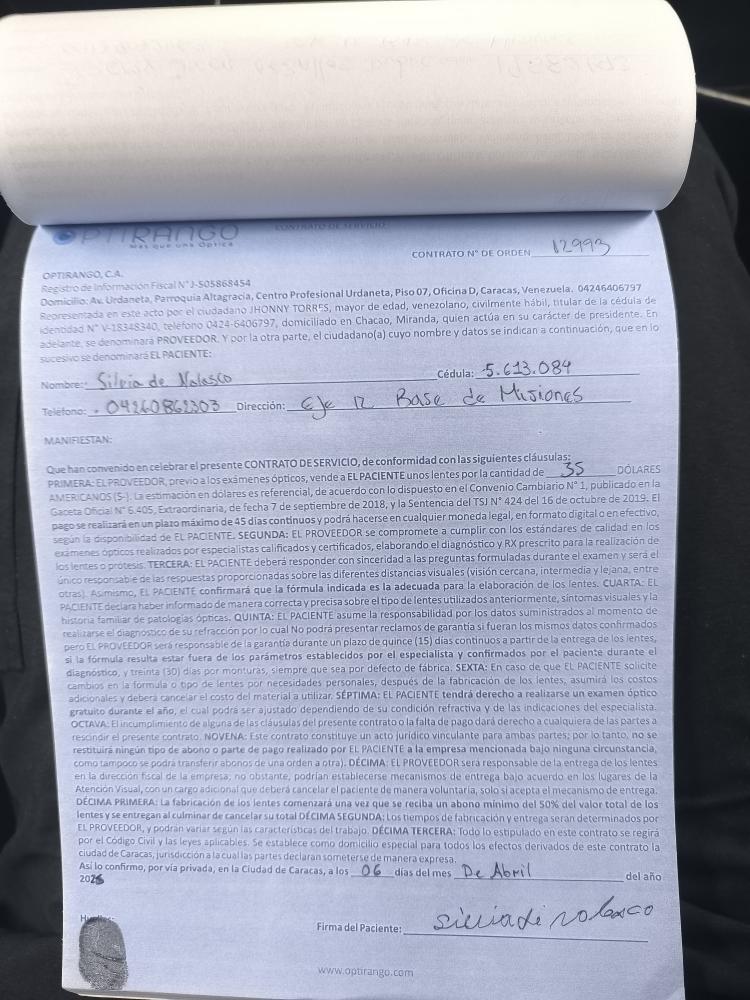 OPTIRANGO
Más que una Óptica
CONTRATO DE SERVICIO
CONTRATO N° DE ORDEN 12993
OPTIRANGO, C.A.
Registro de Información Fiscal N° J-505868454
Domicilio: Av. Urdaneta, Parroquia Altagracia, Centro Profesional Urdaneta, Piso 07, Oficina D, Caracas, Venezuela. 04246406797
Representada en este acto por el ciudadano JHONNY TORRES, mayor de edad, venezolano, civilmente hábil, titular de la cédula de
identidad N° V-18348340, teléfono 0424-6406797, domiciliado en Chacao, Miranda, quien actúa en su carácter de presidente. En
adelante, se denominará PROVEEDOR. Y por la otra parte, el ciudadano(a) cuyo nombre y datos se indican a continuación, que en lo
sucesivo se denominará EL PACIENTE:
Nombre: Silvia de Nolasco Cédula: 5.613.084
Teléfono: 04260862303 Dirección: Eje 12 Base de Misiones
MANIFIESTAN:
Que han convenido en celebrar el presente CONTRATO DE SERVICIO, de conformidad con las siguientes cláusulas:
PRIMERA: EL PROVEEDOR, previo a los exámenes ópticos, vende a EL PACIENTE unos lentes por la cantidad de 35 DÓLARES
AMERICANOS (S-). La estimación en dólares es referencial, de acuerdo con lo dispuesto en el Convenio Cambiario N° 1, publicado en
Gaceta Oficial N° 6.405, Extraordinaria, de fecha 7 de septiembre de 2018, y la Sentencia del TSJ N° 424 del 16 de octubre de 2019. El
pago se realizará en un plazo máximo de 45 días continuos y podrá hacerse en cualquier moneda legal, en formato digital o en efectivo,
según la disponibilidad de EL PACIENTE. SEGUNDA: EL PROVEEDOR se compromete a cumplir con los estándares de calidad en los
exámenes ópticos realizados por especialistas calificados y certificados, elaborando el diagnóstico y RX prescrito para la realización de
los lentes o prótesis. TERCERA: EL PACIENTE deberá responder con sinceridad a las preguntas formuladas durante el examen y será el
único responsable de las respuestas proporcionadas sobre las diferentes distancias visuales (visión cercana, intermedia y lejana, entre
otras). Asimismo, EL PACIENTE confirmará que la fórmula indicada es la adecuada para la elaboración de los lentes. CUARTA: EL
PACIENTE declara haber informado de manera correcta y precisa sobre el tipo de lentes utilizados anteriormente, síntomas visuales y la
historia familiar de patologías ópticas. QUINTA: EL PACIENTE asume la responsabilidad por los datos suministrados al momento de
realizarse el diagnostico de su refracción por lo cual No podrá presentar reclamos de garantía si fueran los mismos datos confirmados
pero EL PROVEEDOR será responsable de la garantía durante un plazo de quince (15) días continuos a partir de la entrega de los lentes,
si la fórmula resulta estar fuera de los parámetros establecidos por el especialista y confirmados por el paciente durante el
diagnóstico, y treinta (30) días por monturas, siempre que sea por defecto de fábrica. SEXTA: En caso de que EL PACIENTE solicite
cambios en la fórmula o tipo de lentes por necesidades personales, después de la fabricación de los lentes, asumirá los costos
adicionales y deberá cancelar el costo del material a utilizar. SÉPTIMA: EL PACIENTE tendrá derecho a realizarse un examen óptico
gratuito durante el año, el cual podrá ser ajustado dependiendo de su condición refractiva y de las indicaciones del especialista.
OCTAVA: El incumplimiento de alguna de las cláusulas del presente contrato o la falta de pago dará derecho a cualquiera de las partes a
rescindir el presente contrato. NOVENA: Este contrato constituye un acto jurídico vinculante para ambas partes; por lo tanto, no se
restituirá ningún tipo de abono o parte de pago realizado por EL PACIENTE a la empresa mencionada bajo ninguna circunstancia,
como tampoco se podrá transferir abonos de una orden a otra). DÉCIMA: EL PROVEEDOR será responsable de la entrega de los lentes
en la dirección fiscal de la empresa; no obstante, podrían establecerse mecanismos de entrega bajo acuerdo en los lugares de la
Atención Visual, con un cargo adicional que deberá cancelar el paciente de manera voluntaria, solo si acepta el mecanismo de entrega.
DÉCIMA PRIMERA: La fabricación de los lentes comenzará una vez que se reciba un abono mínimo del 50% del valor total de los
lentes y se entregan al culminar de cancelar su total DÉCIMA SEGUNDA: Los tiempos de fabricación y entrega serán determinados por
EL PROVEEDOR, y podrán variar según las características del trabajo. DÉCIMA TERCERA: Todo lo estipulado en este contrato se regirá
por el Código Civil y las leyes aplicables. Se establece como domicilio especial para todos los efectos derivados de este contrato la
ciudad de Caracas, jurisdicción a la cual las partes declaran someterse de manera expresa.
Así lo confirmo, por vía privada, en la Ciudad de Caracas, a los 06 días del mes De Abril del año
202
Huellas:
Firma del Paciente: silvia de nolasco
www.optirango.com